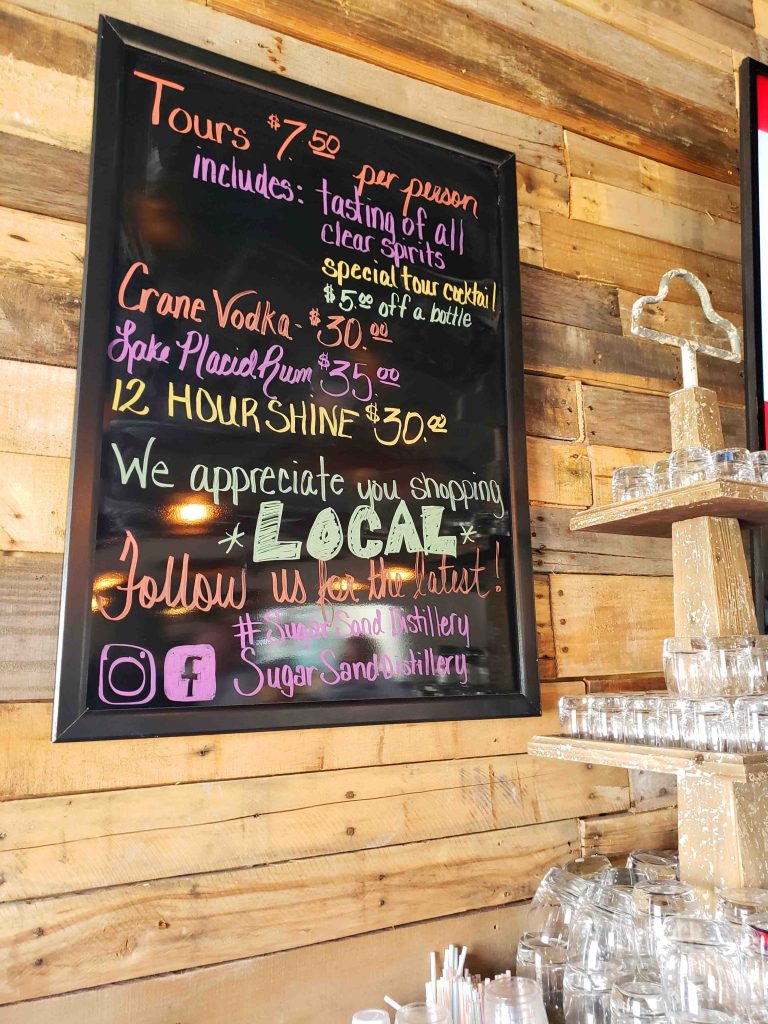 Tours $7.50 per person
includes: tasting of all
clear spirits
special tour cocktail
$5.00 off a bottle
Crane Vodka - $30.00
Lake Placid Rum $35.00
12 HOUR SHINE $30.00
We appreciate you shopping
*LOCAL*
Follow us for the latest!
#SugarSandDistillery
f SugarSandDistillery